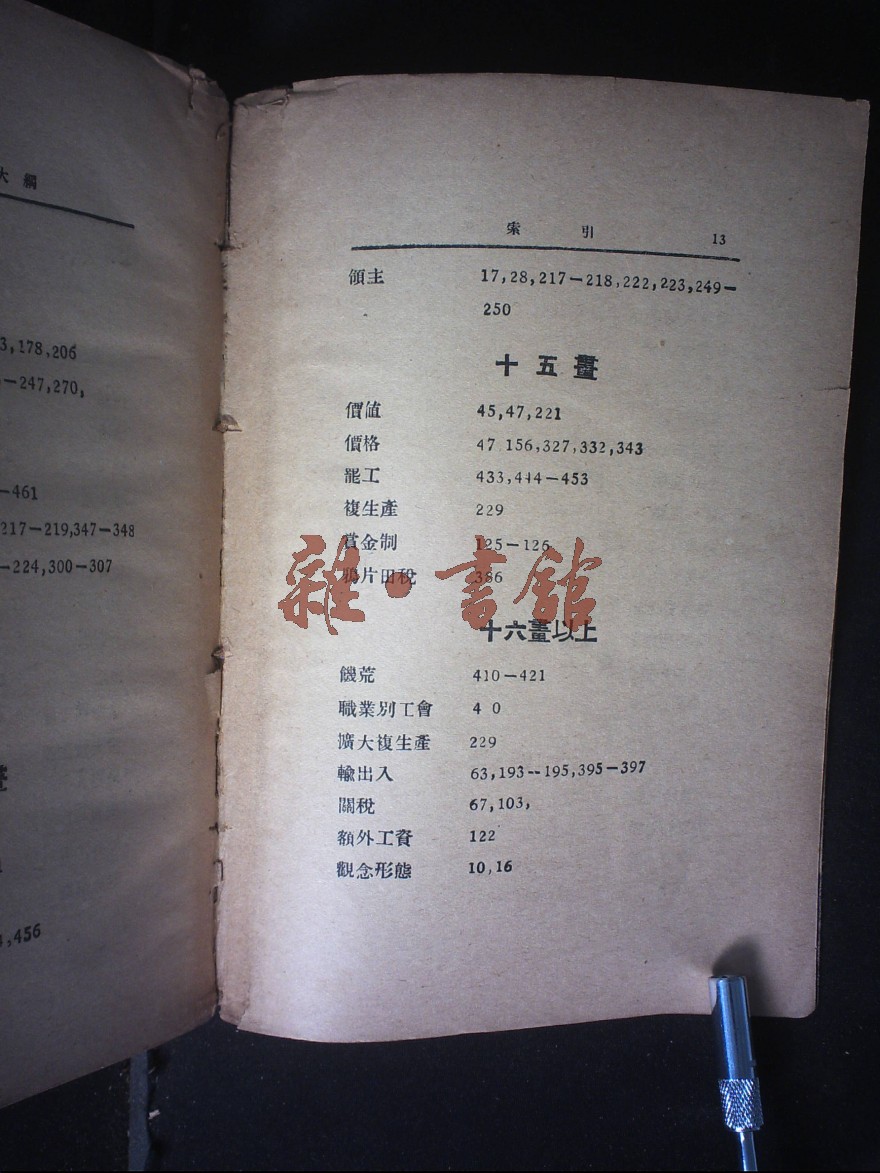 大綱
3,178,206
－247,270,
－461
217－219,347－348
－224,300－307
,456
索引 13
領主 17,28,217－218,222,223,249－
250
十五畫
價値 45,47,221
價格 47 156,327,332,343
罷工 433,444－453
複生產 229
賞金制 125－126
鴉片田稅 386
雜·書館
十六畫以上
饑荒 410－421
職業別工會 4 0
擴大複生產 229
輸出入 63,193－195,395－397
關稅 67,103,
額外工資 122
觀念形態 10,16